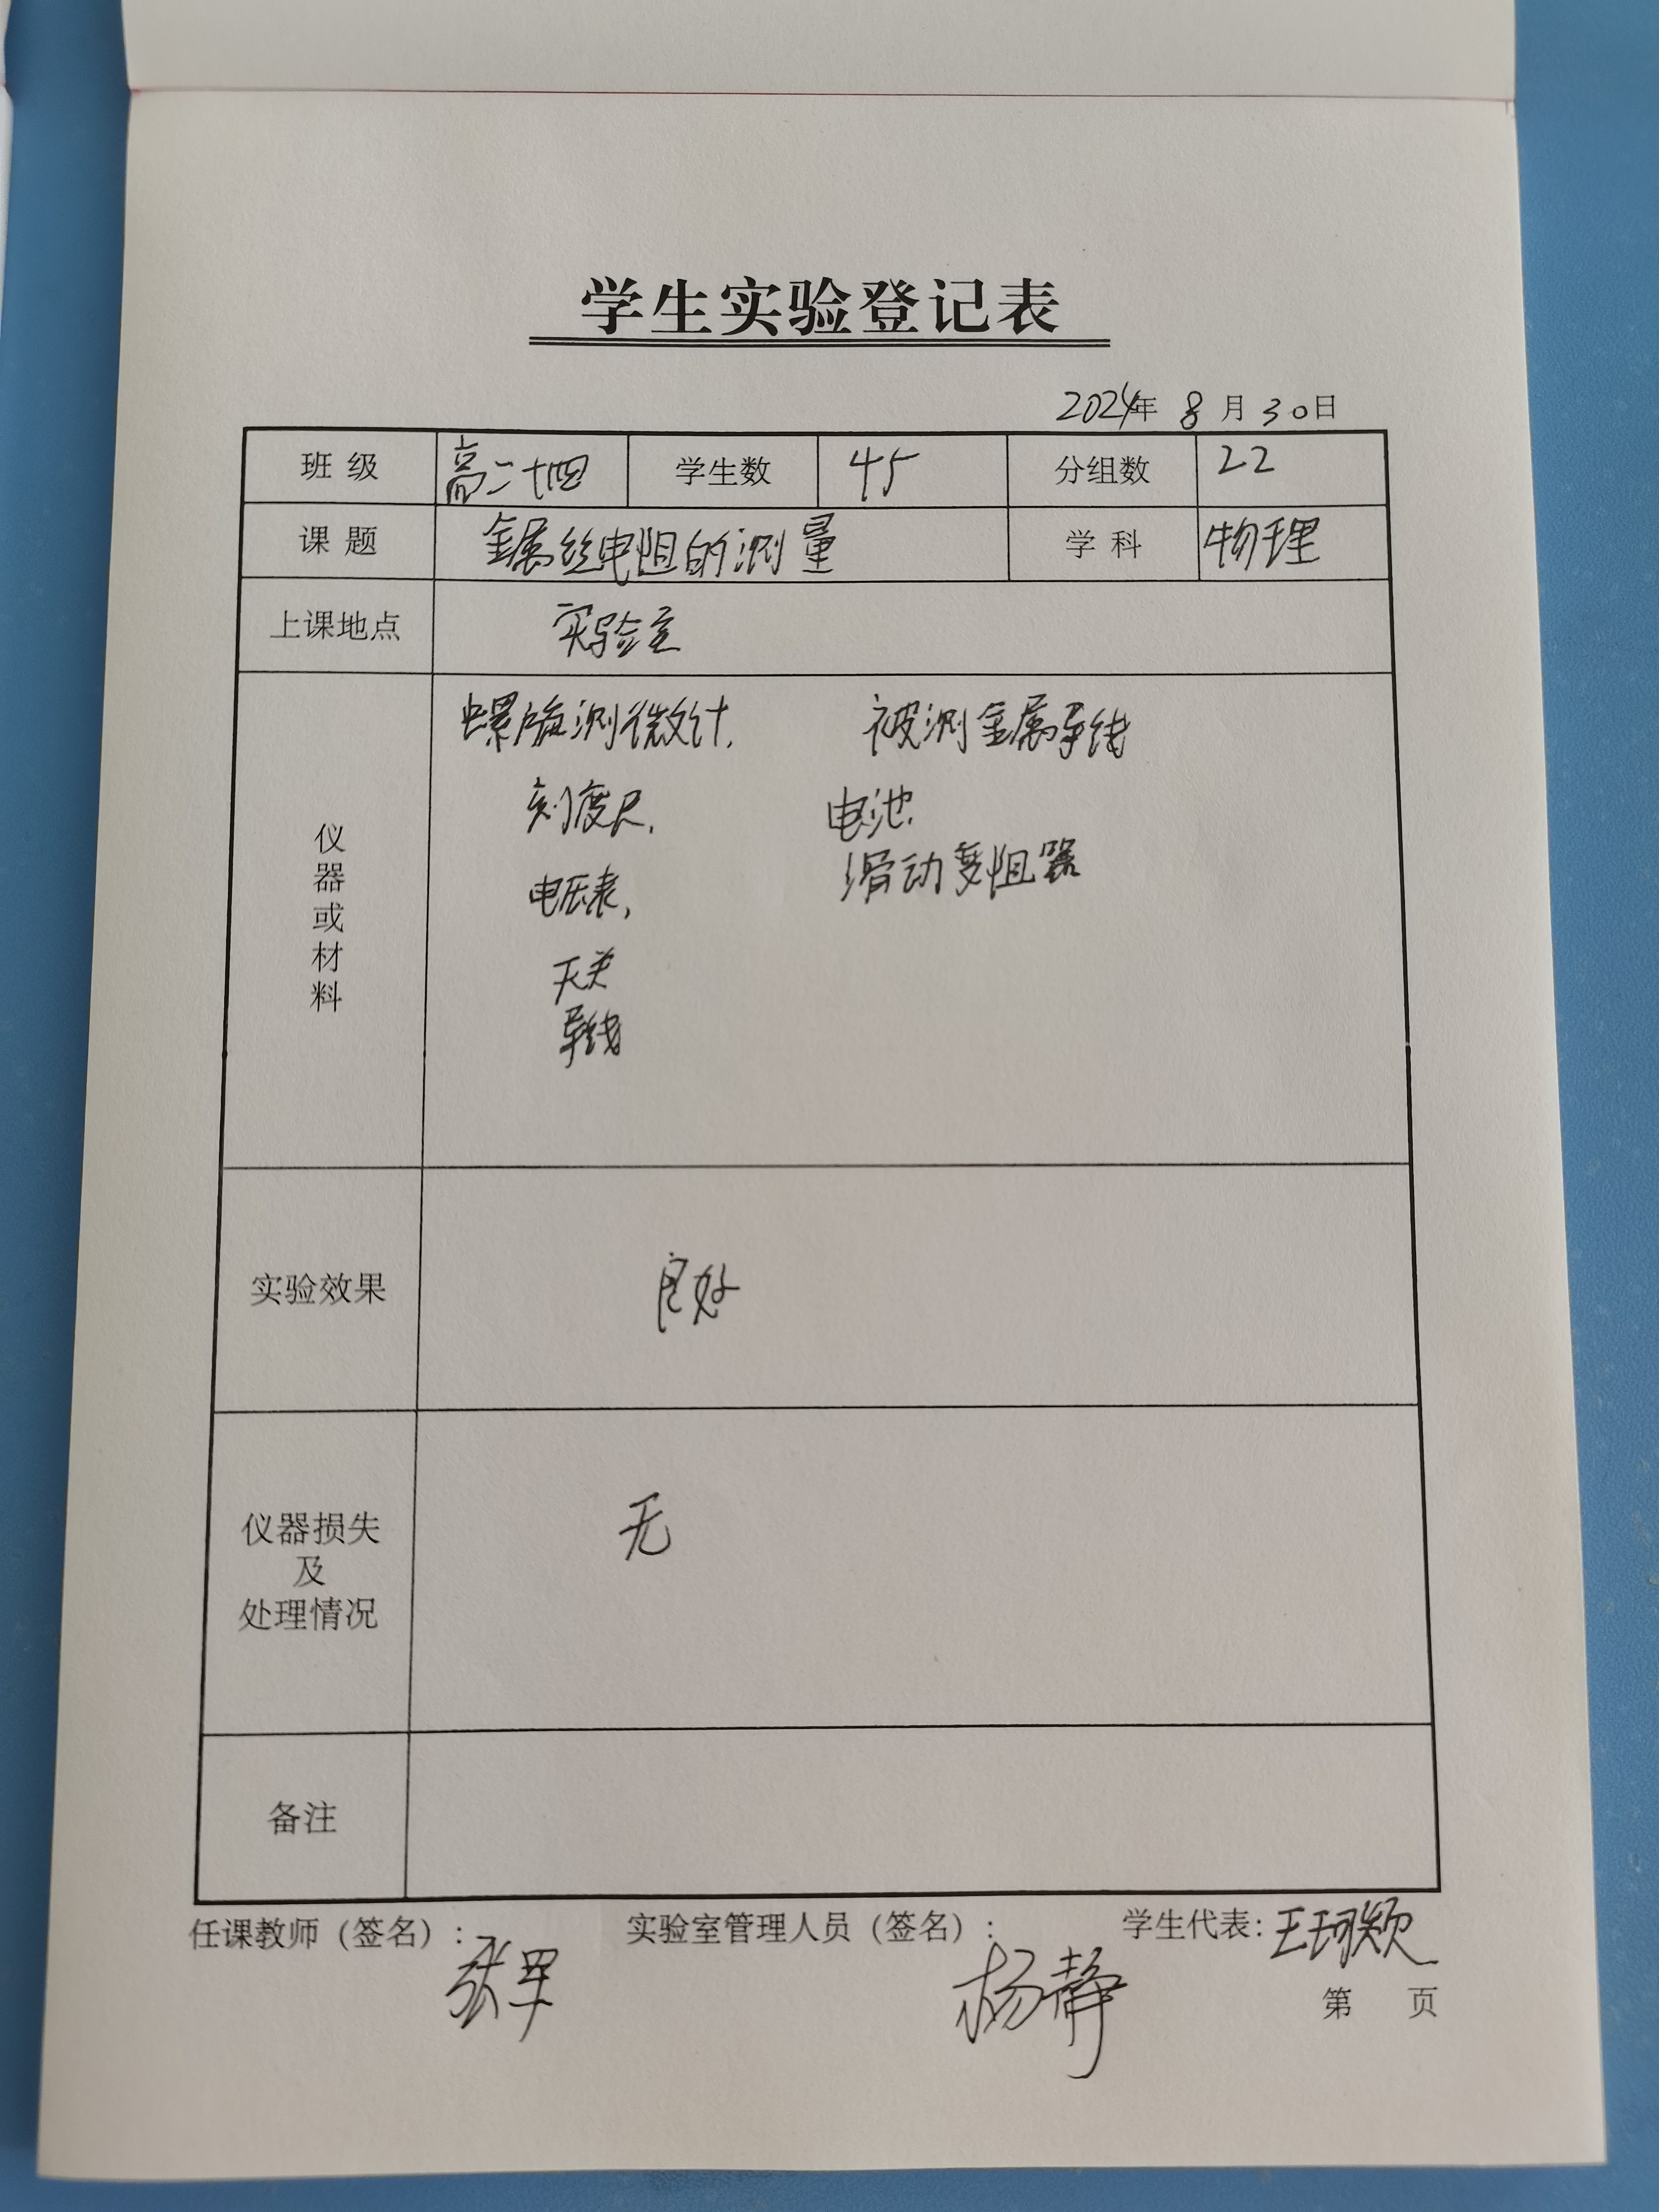 学生实验登记表
2024年 8月30日
班级 高二十四 学生数 45 分组数 22
课题 金属丝电阻的测量 学科 物理
上课地点 实验室
仪器或材料
螺旋测微计, 被测金属导线
刻度尺, 电池,
电压表, 滑动变阻器
开关
导线
实验效果 良好
仪器损失
及
处理情况
无
备注
任课教师（签名）: 实验室管理人员（签名）: 杨静 学生代表: 王珂颖
第 页